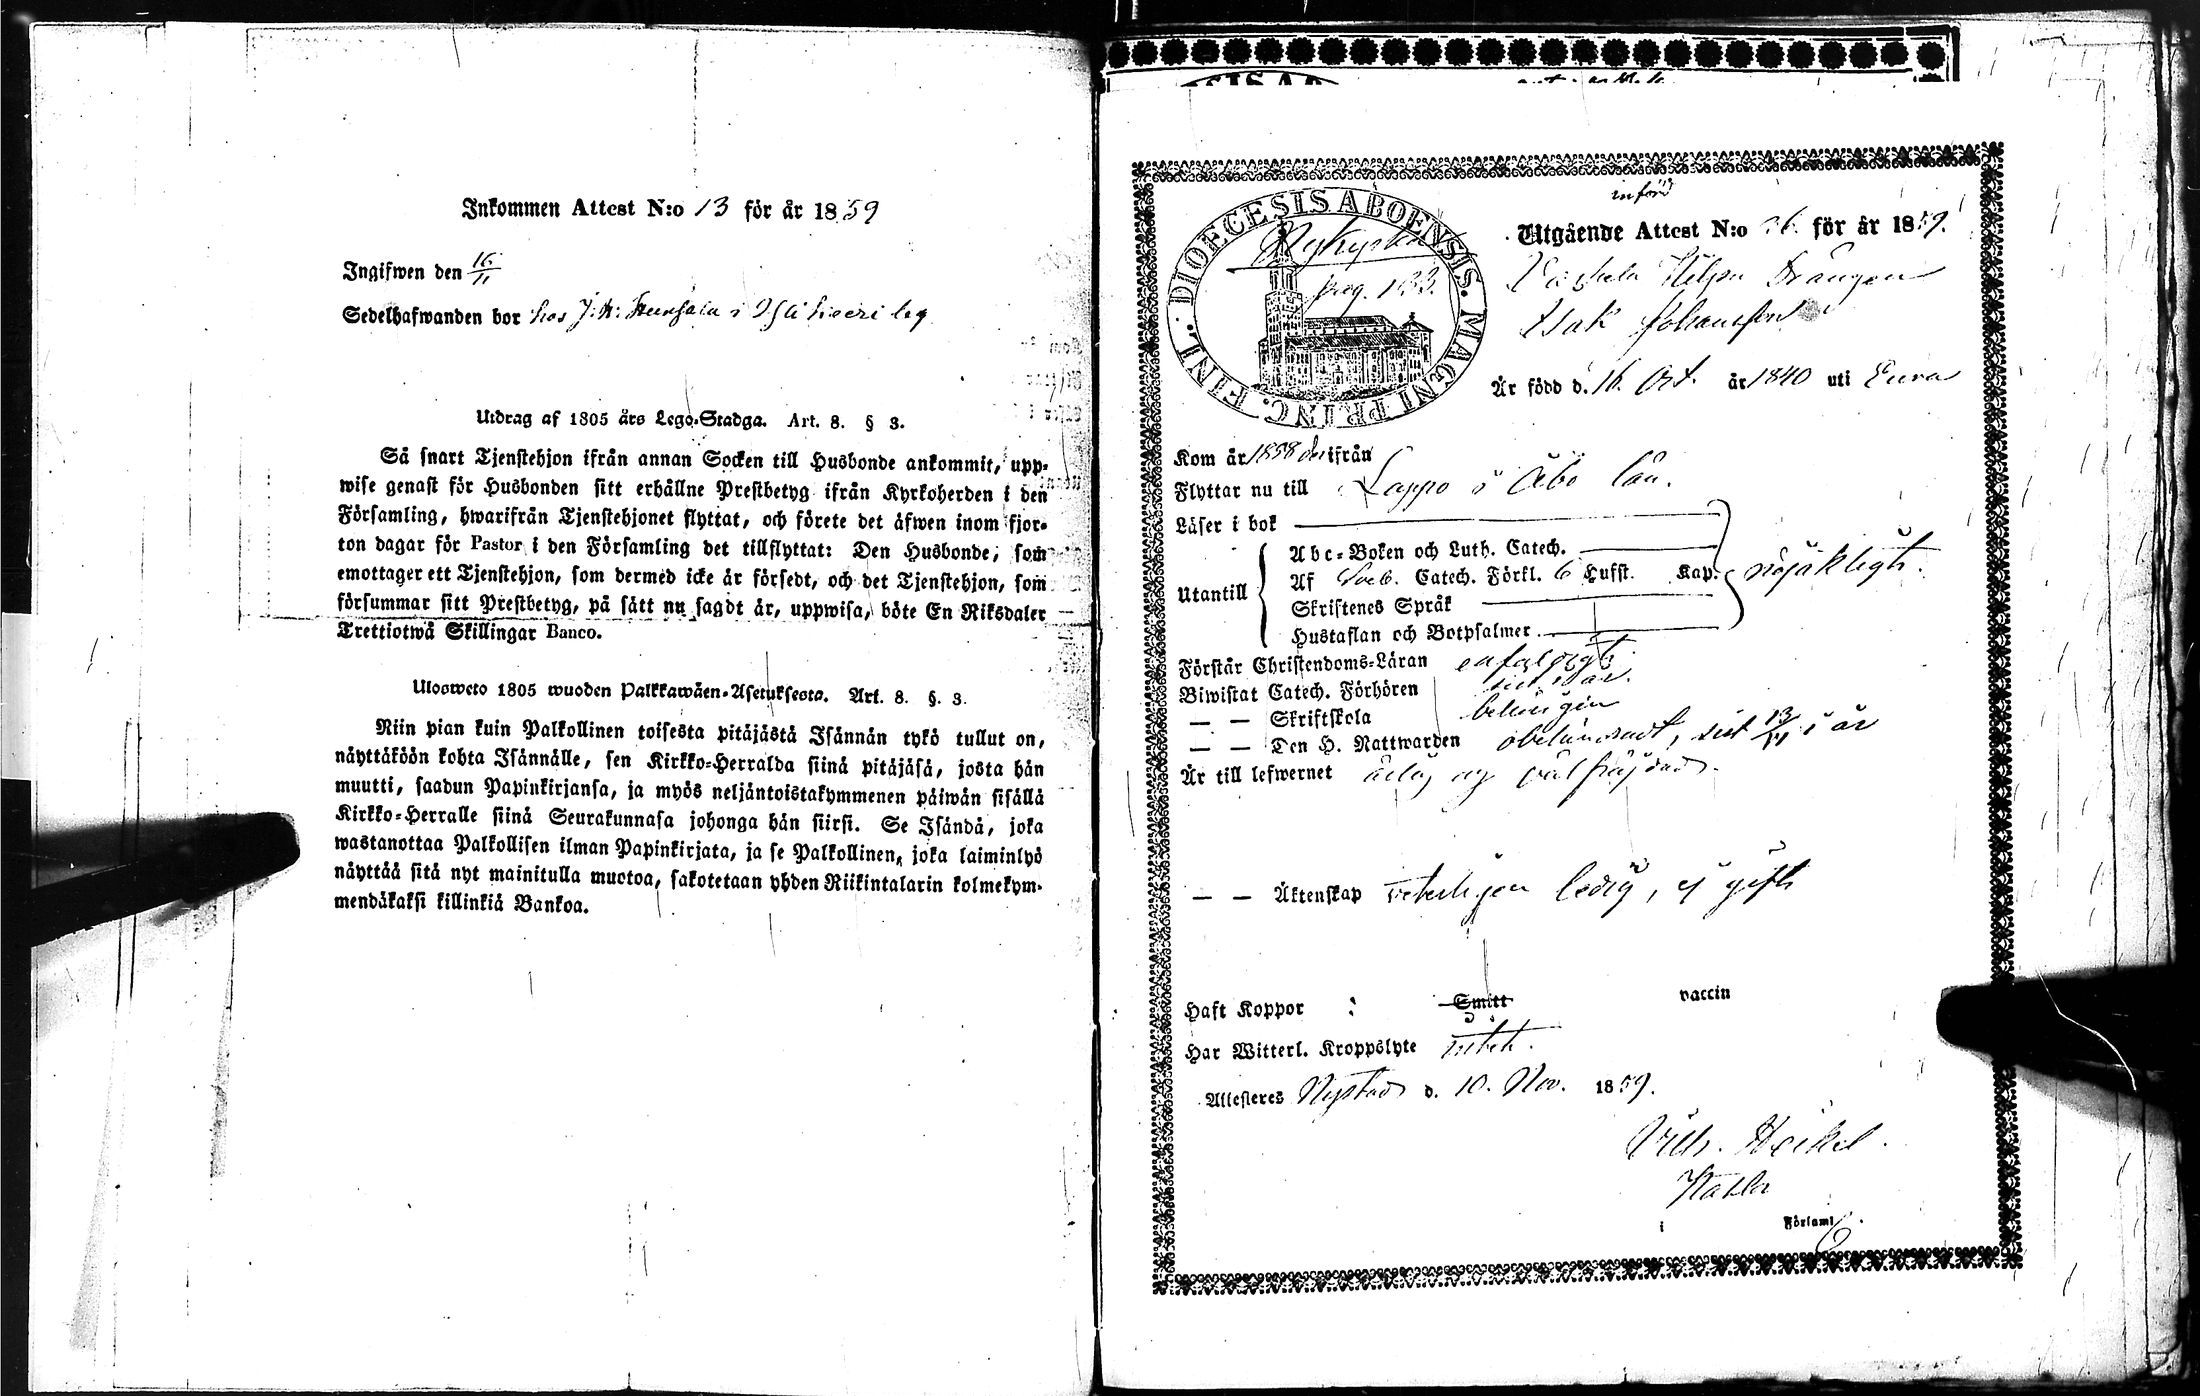 Inkommen Attest N:o 13 för år 1859
Ingifwen den 16/11
Sedelhafwanden bor hos J:k: i
Utdrag af 1805 års Lego-Stadga. Art. 8. § 3.
Så snart Tjenstehjon ifrån annan Socken till Husbonde ankommit, upp-
wise genast för Husbonden sitt erhållne Prestbetyg ifrån Kyrkoherden i den
Församling, hwarifrån Tjenstehjonet flyttat, och förete det äfwen inom fjor-
ton dagar för Pastor i den Församling det tillflyttat: Den Husbonde, som
emottager ett Tjenstehjon, som dermed icke är försedt, och det Tjenstehjon, som
försummar sitt Prestbetyg, på sätt nu sagdt är, uppwisa, böte En Riksdaler
Trettiotwå Skillingar Banco.
Ulosweto 1805 wuoden Palkkawäen-Asetuksesta. Art. 8. §. 3.
Niin pian kuin Palkollinen toisesta pitäjästä Isännän tykö tullut on,
näyttäköön kohta Isännälle, sen Kirkko-Herralda siinä pitäjäsä, josta hän
muutti, saadun Papinkirjansa, ja myös neljäntoistakymmenen päiwän sisällä
Kirkko-Herralle siinä Seurakunnasa johonga hän siirsi. Se Isändä, joka
wastanottaa Palkollisen ilman Papinkirjata, ja se Palkollinen, joka laiminlyö
näyttää sitä nyt mainitulla muotoa, sakotetaan yhden Riikintalarin kolmekym-
mendäkaksi killinkiä Bankoa.
DIOECESIS ABOENSIS. MAGNI PRINC. FINL.
Nykyrka
pag. 133.
införd
Utgående Attest N:o för år 1859.
Drängen
Isak Johansson
Är född d. 16. Oct. år 1840 uti Eura
Kom år 1858 derifrån
Flyttar nu till Lappo i Åbo län.
Läser i bok
Utantill
Abc-Boken och Luth. Catech.
Af Sveb. Catech. Förkl. 6 Hufst. Kap.
Skriftenes Språk
Hustaflan och Botpsalmer
nöjaktigt.
Förstår Christendoms-Läran enfaldigt
Biwistat Catech. Förhören
— — Skriftskola behörigen
— — Den H. Nattwarden obehindradt, sist 13/11 i år
Är till lefwernet ärlig og välfräjdad.
— — Äktenskap veterligen ledig, ej gift
Haft Koppor : Smitt vaccin
Har Witterl. Kroppslyte intet.
Attesteres Nystad d. 10. Nov. 1859.
Vilh. Heikel.
Församl.